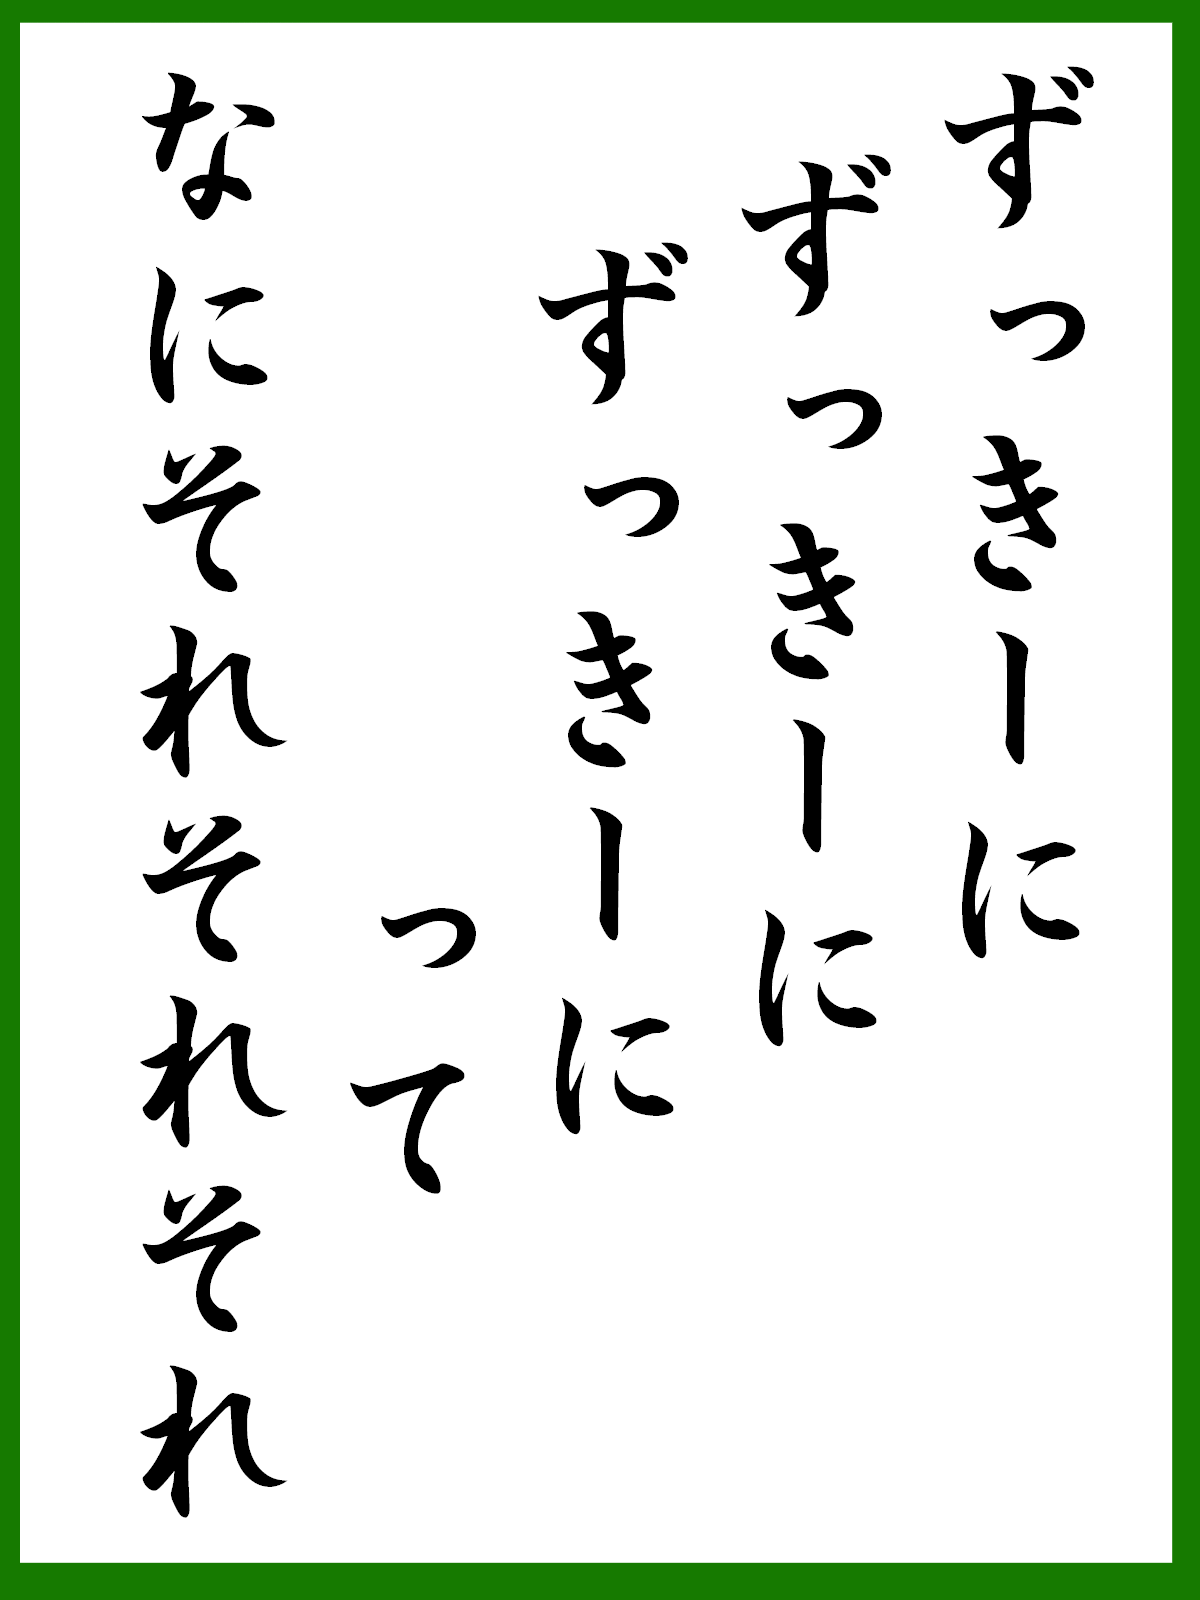 ずっきーに
ずっきーに
ずっきーに
って
なにそれそれそれ